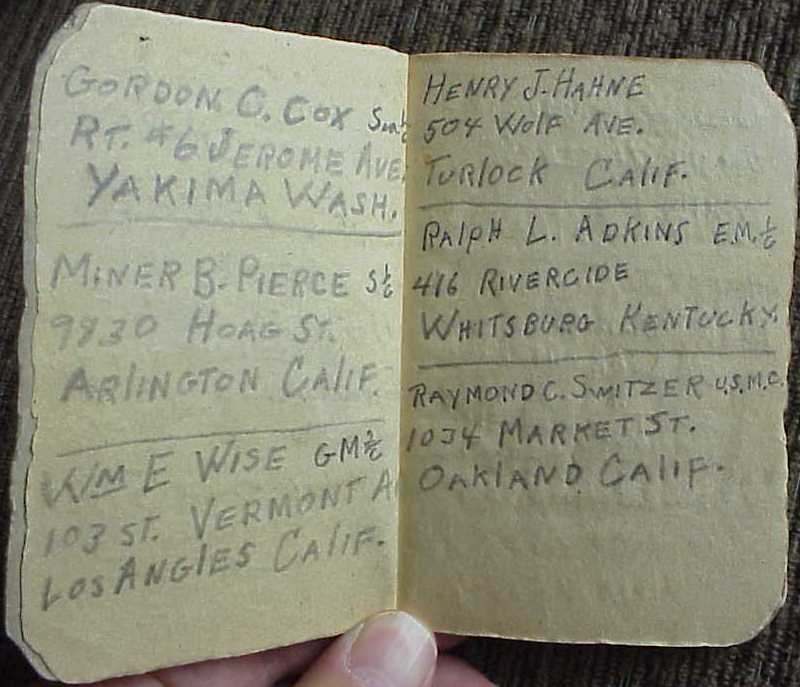 GORDON C. COX Sm 1/c
RT. #6 JEROME AVE.
YAKIMA WASH.
MINER B. PIERCE S 1/c
9830 HOAG ST.
ARLINGTON CALIF.
WM E WISE GM 2/c
103 ST. VERMONT A
LOS ANGLES CALIF.
HENRY J. HAHNE
504 WOLF AVE.
TURLOCK CALIF.
RALPH L. ADKINS E.M. 1/c
416 RIVERCIDE
WHITSBURG KENTUCKY.
RAYMOND C. SWITZER U.S.M.C.
1034 MARKET ST.
OAKLAND CALIF.